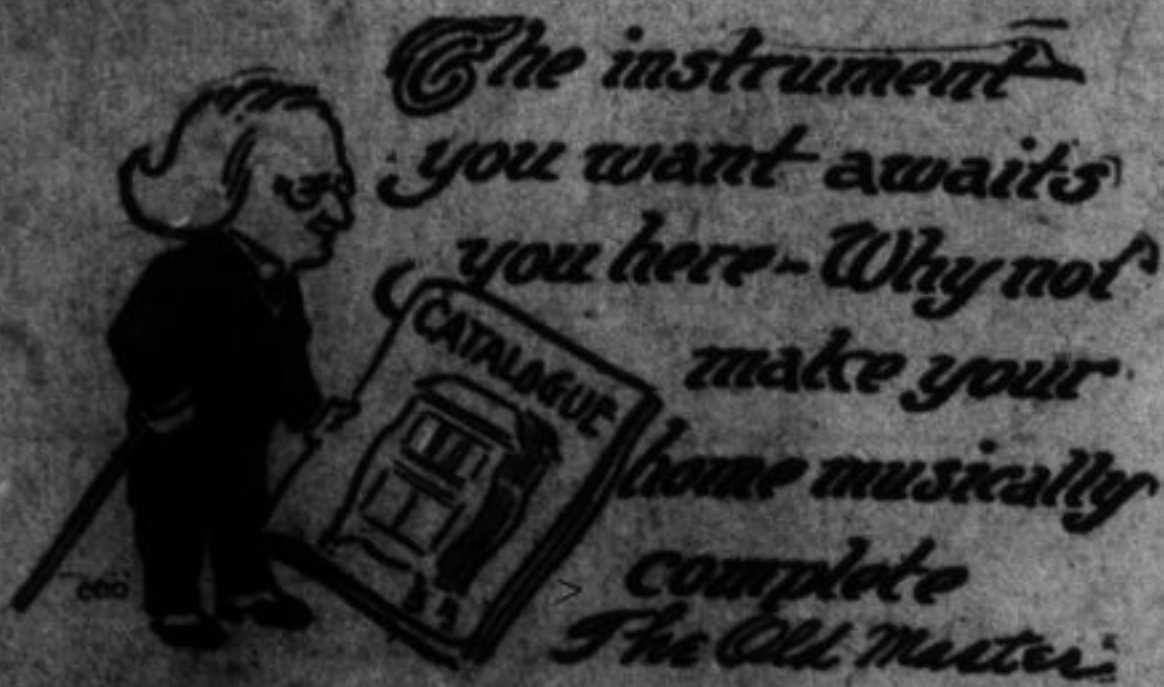 The instrument
you want awaits
you here - Why not
make your
home musically
complete
The Old Master
CATALOGUE